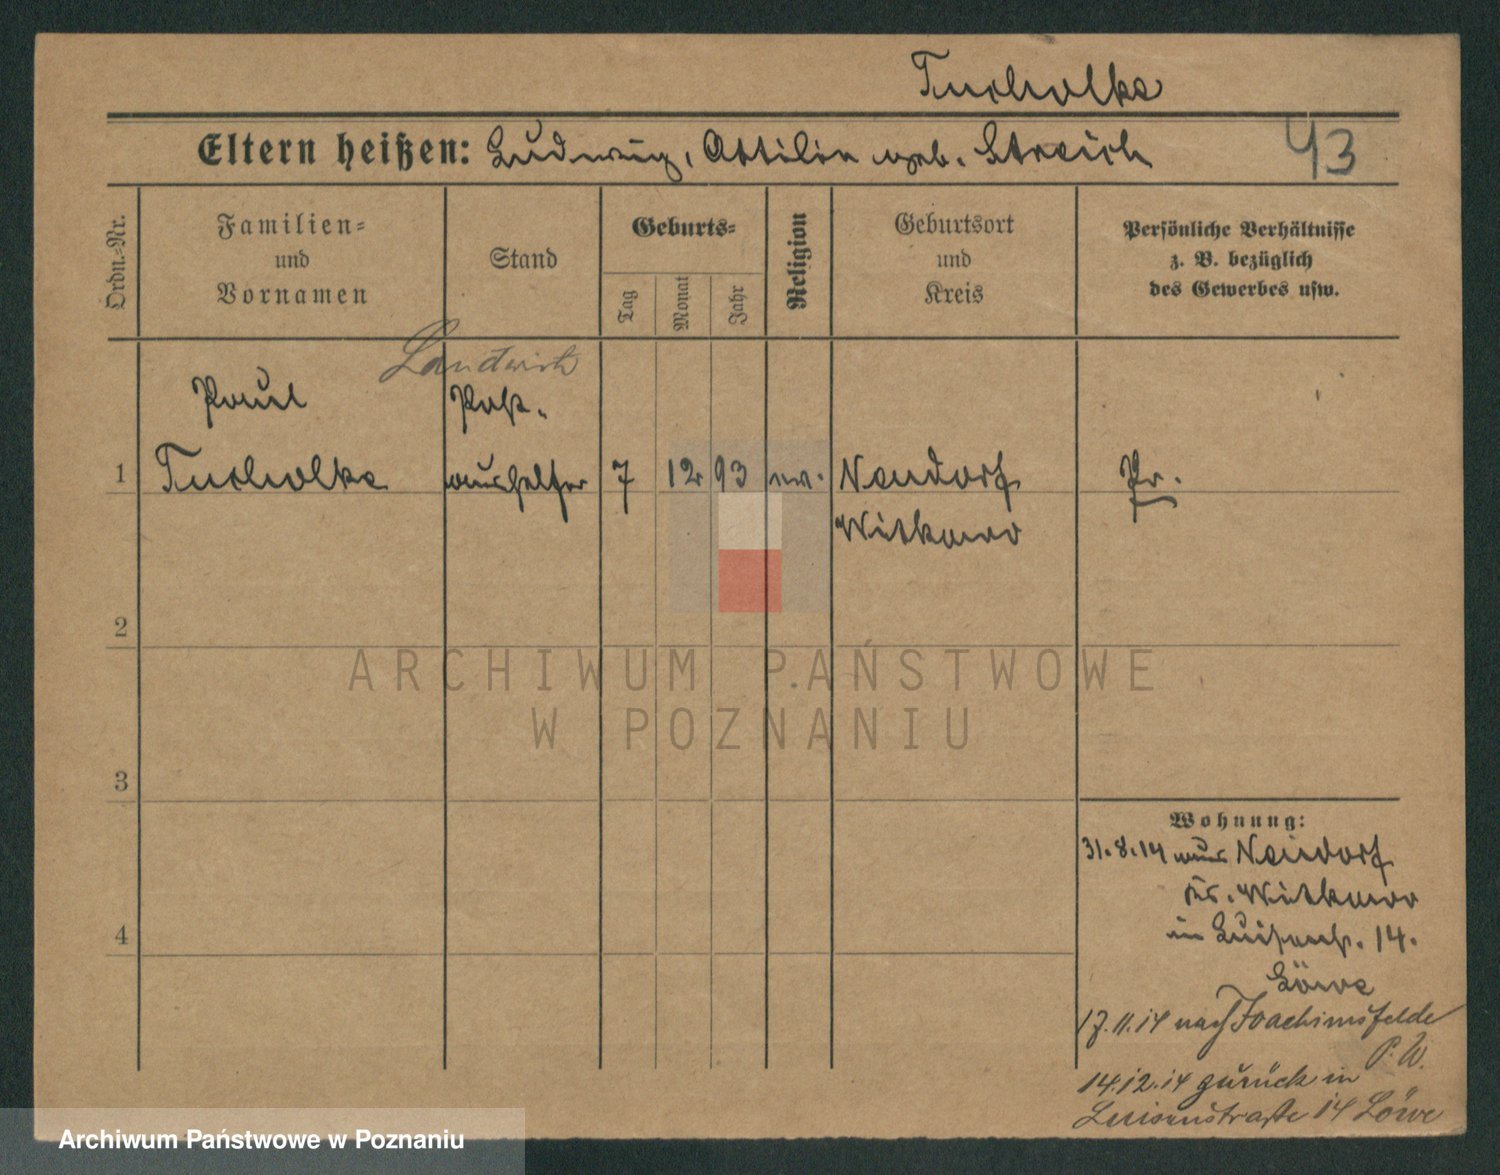 Tucholke
Eltern heißen: Ludwig, Ottilie geb. Streich
43
Ordn.-Nr.
Familien-
und
Vornamen
Stand
Geburts-
Tag
Monat
Jahr
Religion
Geburtsort
und
Kreis
Persönliche Verhältnisse
z. B. bezüglich
des Gewerbes usw.
Landwirt
Paul
Post-
1
Tucholke
aushelfer
7
12
93
ev.
Neudorf
Pr.
Witkowo
2
ARCHIWUM PAŃSTWOWE
W POZNANIU
3
Wohnung:
31.8.14 aus Neudorf
Kr. Witkowo
4
in Luisenstr. 14.
Löwe
17.11.14 nach Joachimsfelde
P. W.
14.12.14 zurück in
Luisenstraße 14 Löwe
Archiwum Państwowe w Poznaniu